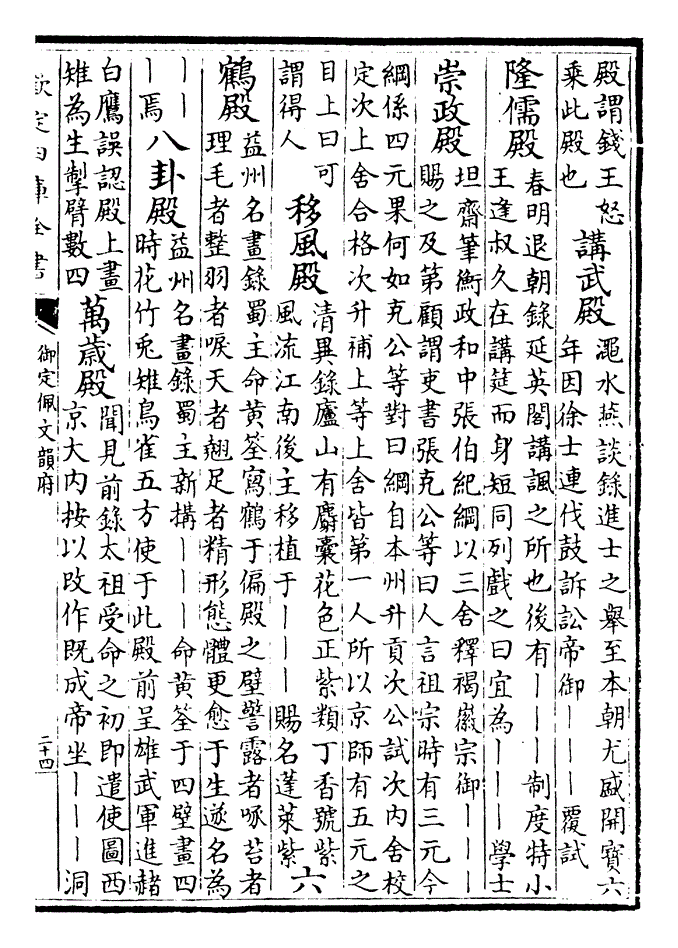 殿謂錢王怒
乘此殿也
講武殿
澠水燕談錄進士之舉至本朝尤盛開寶六
年因徐士連伐鼓訴訟帝御｜｜｜覆試
隆儒殿
春明退朝錄延英閣講諷之所也後有｜｜｜制度特小
王逢叔久在講筵而身短同列戲之曰宜為｜｜｜學士
崇政殿
坦齋筆衡政和中張伯紀綱以三舍釋褐徽宗御｜｜｜
賜之及第顧謂吏書張克公等曰人言祖宗時有三元今
綱係四元果何如克公等對曰綱自本州升貢次公試次內舍校
定次上舍合格次升補上等上舍皆第一人所以京師有五元之
目上曰可
謂得人
移風殿
清異錄廬山有麝囊花色正紫類丁香號紫
風流江南後主移植于｜｜｜賜名蓬萊紫
六
鶴殿
益州名畫錄蜀主命黃筌寫鶴于偏殿之壁警露者啄苔者
理毛者整羽者唳天者翹足者精形態體更愈于生遂名為
｜｜
｜焉
八卦殿
益州名畫錄蜀主新搆｜｜｜命黃筌于四壁畫四
時花竹兎雉鳥雀五方使于此殿前呈雄武軍進赭
白鷹誤認殿上畫
雉為生掣臂數四
萬歲殿
聞見前錄太祖受命之初即遣使圖西
京大內按以改作既成帝坐｜｜｜洞
欽定四庫全書
御定佩文韻府
二十四